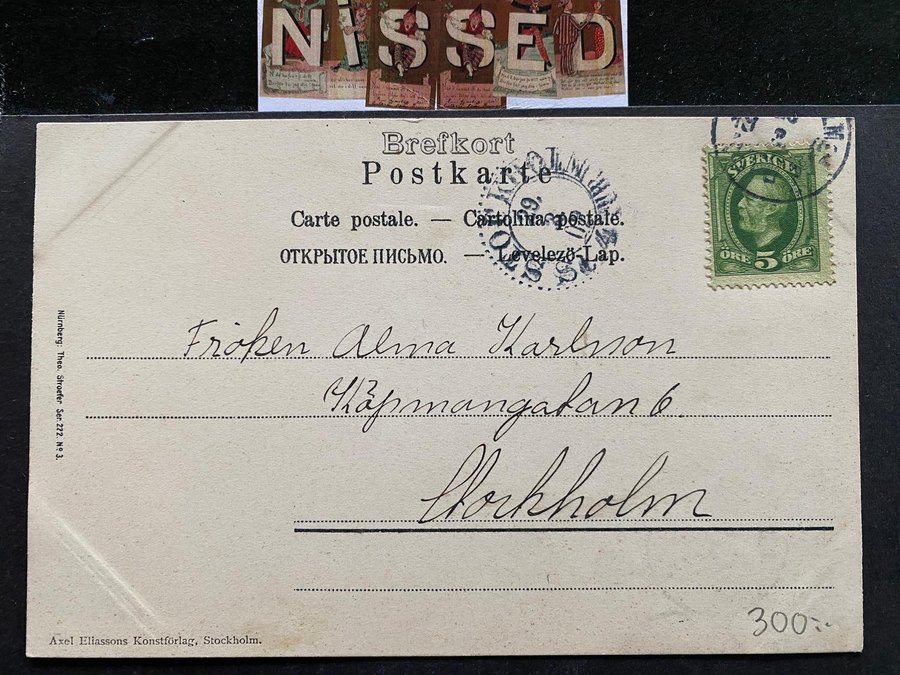 NISSED
Brefkort
Postkarte
Carte postale. — Cartolina postale.
ОТКРЫТОЕ ПИСЬМО. — Levelező-Lap.
STOCKHOLM
SVERIGE
ÖRE 5 ÖRE
Fröken Alma Karlsson
Köpmangatan 6.
Stockholm
Nürnberg: Theo. Stroefer Ser. 222. Nº 3.
Axel Eliassons Konstförlag, Stockholm.
300:-